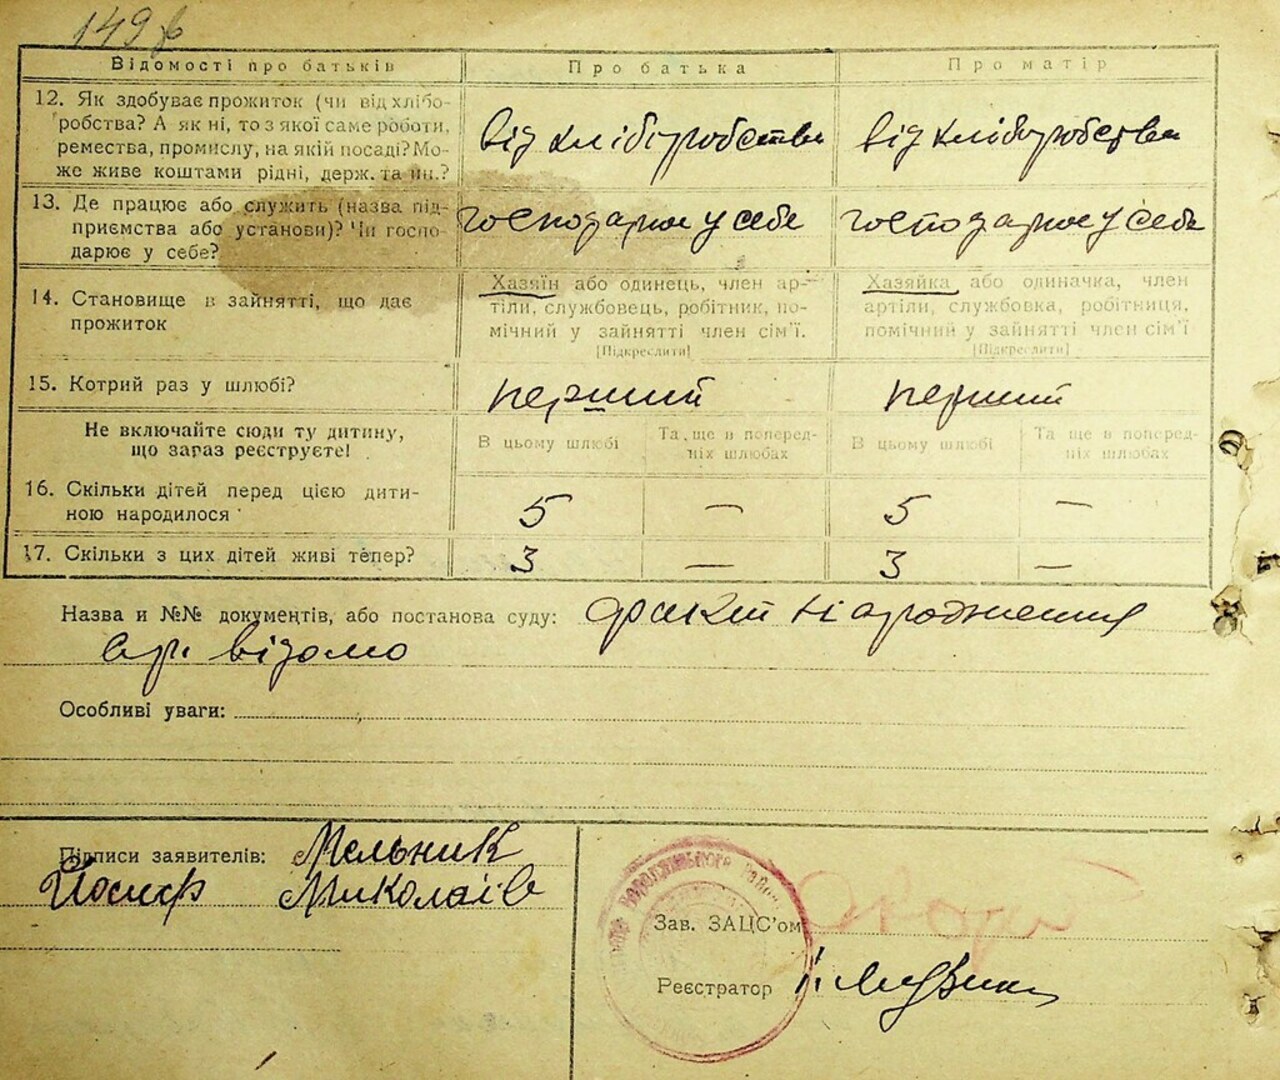 149
Відомості про батьків
Про батька
Про матір
12. Як здобуває прожиток (чи від хлібо-
робства? А як ні, то з якої саме роботи,
ремества, промислу, на якій посаді? Мо-
же живе коштами рідні, держ. та ин.?
від хліборобства
від хліборобства
13. Де працює або служить (назва під-
приємства або установи)? Чи госпо-
дарює у себе?
господарює у себе
господарює у себе
14. Становище в зайнятті, що дає
прожиток
Хазяїн або одинець, член ар-
тіли, службовець, робітник, по-
мічний у зайнятті член сім'ї.
[Підкреслити]
Хазяйка або одиначка, член
артіли, службовка, робітниця,
помічний у зайнятті член сім'ї
[Підкреслити]
15. Котрий раз у шлюбі?
перший
перший
Не включайте сюди ту дитину,
що зараз реєструєте!
В цьому шлюбі
Та, ще в поперед-
ніх шлюбах
В цьому шлюбі
Та ще в поперед-
ніх шлюбах
16. Скільки дітей перед цією дити-
ною народилося
5 — 5 —
17. Скільки з цих дітей живі тепер?
3 — 3 —
Назва и №№ документів, або постанова суду: факт народження
відомо
Особливі уваги:
Підписи заявителів: Мельник
Йосиф Миколаїв
Зав. ЗАЦС'ом
Реєстратор